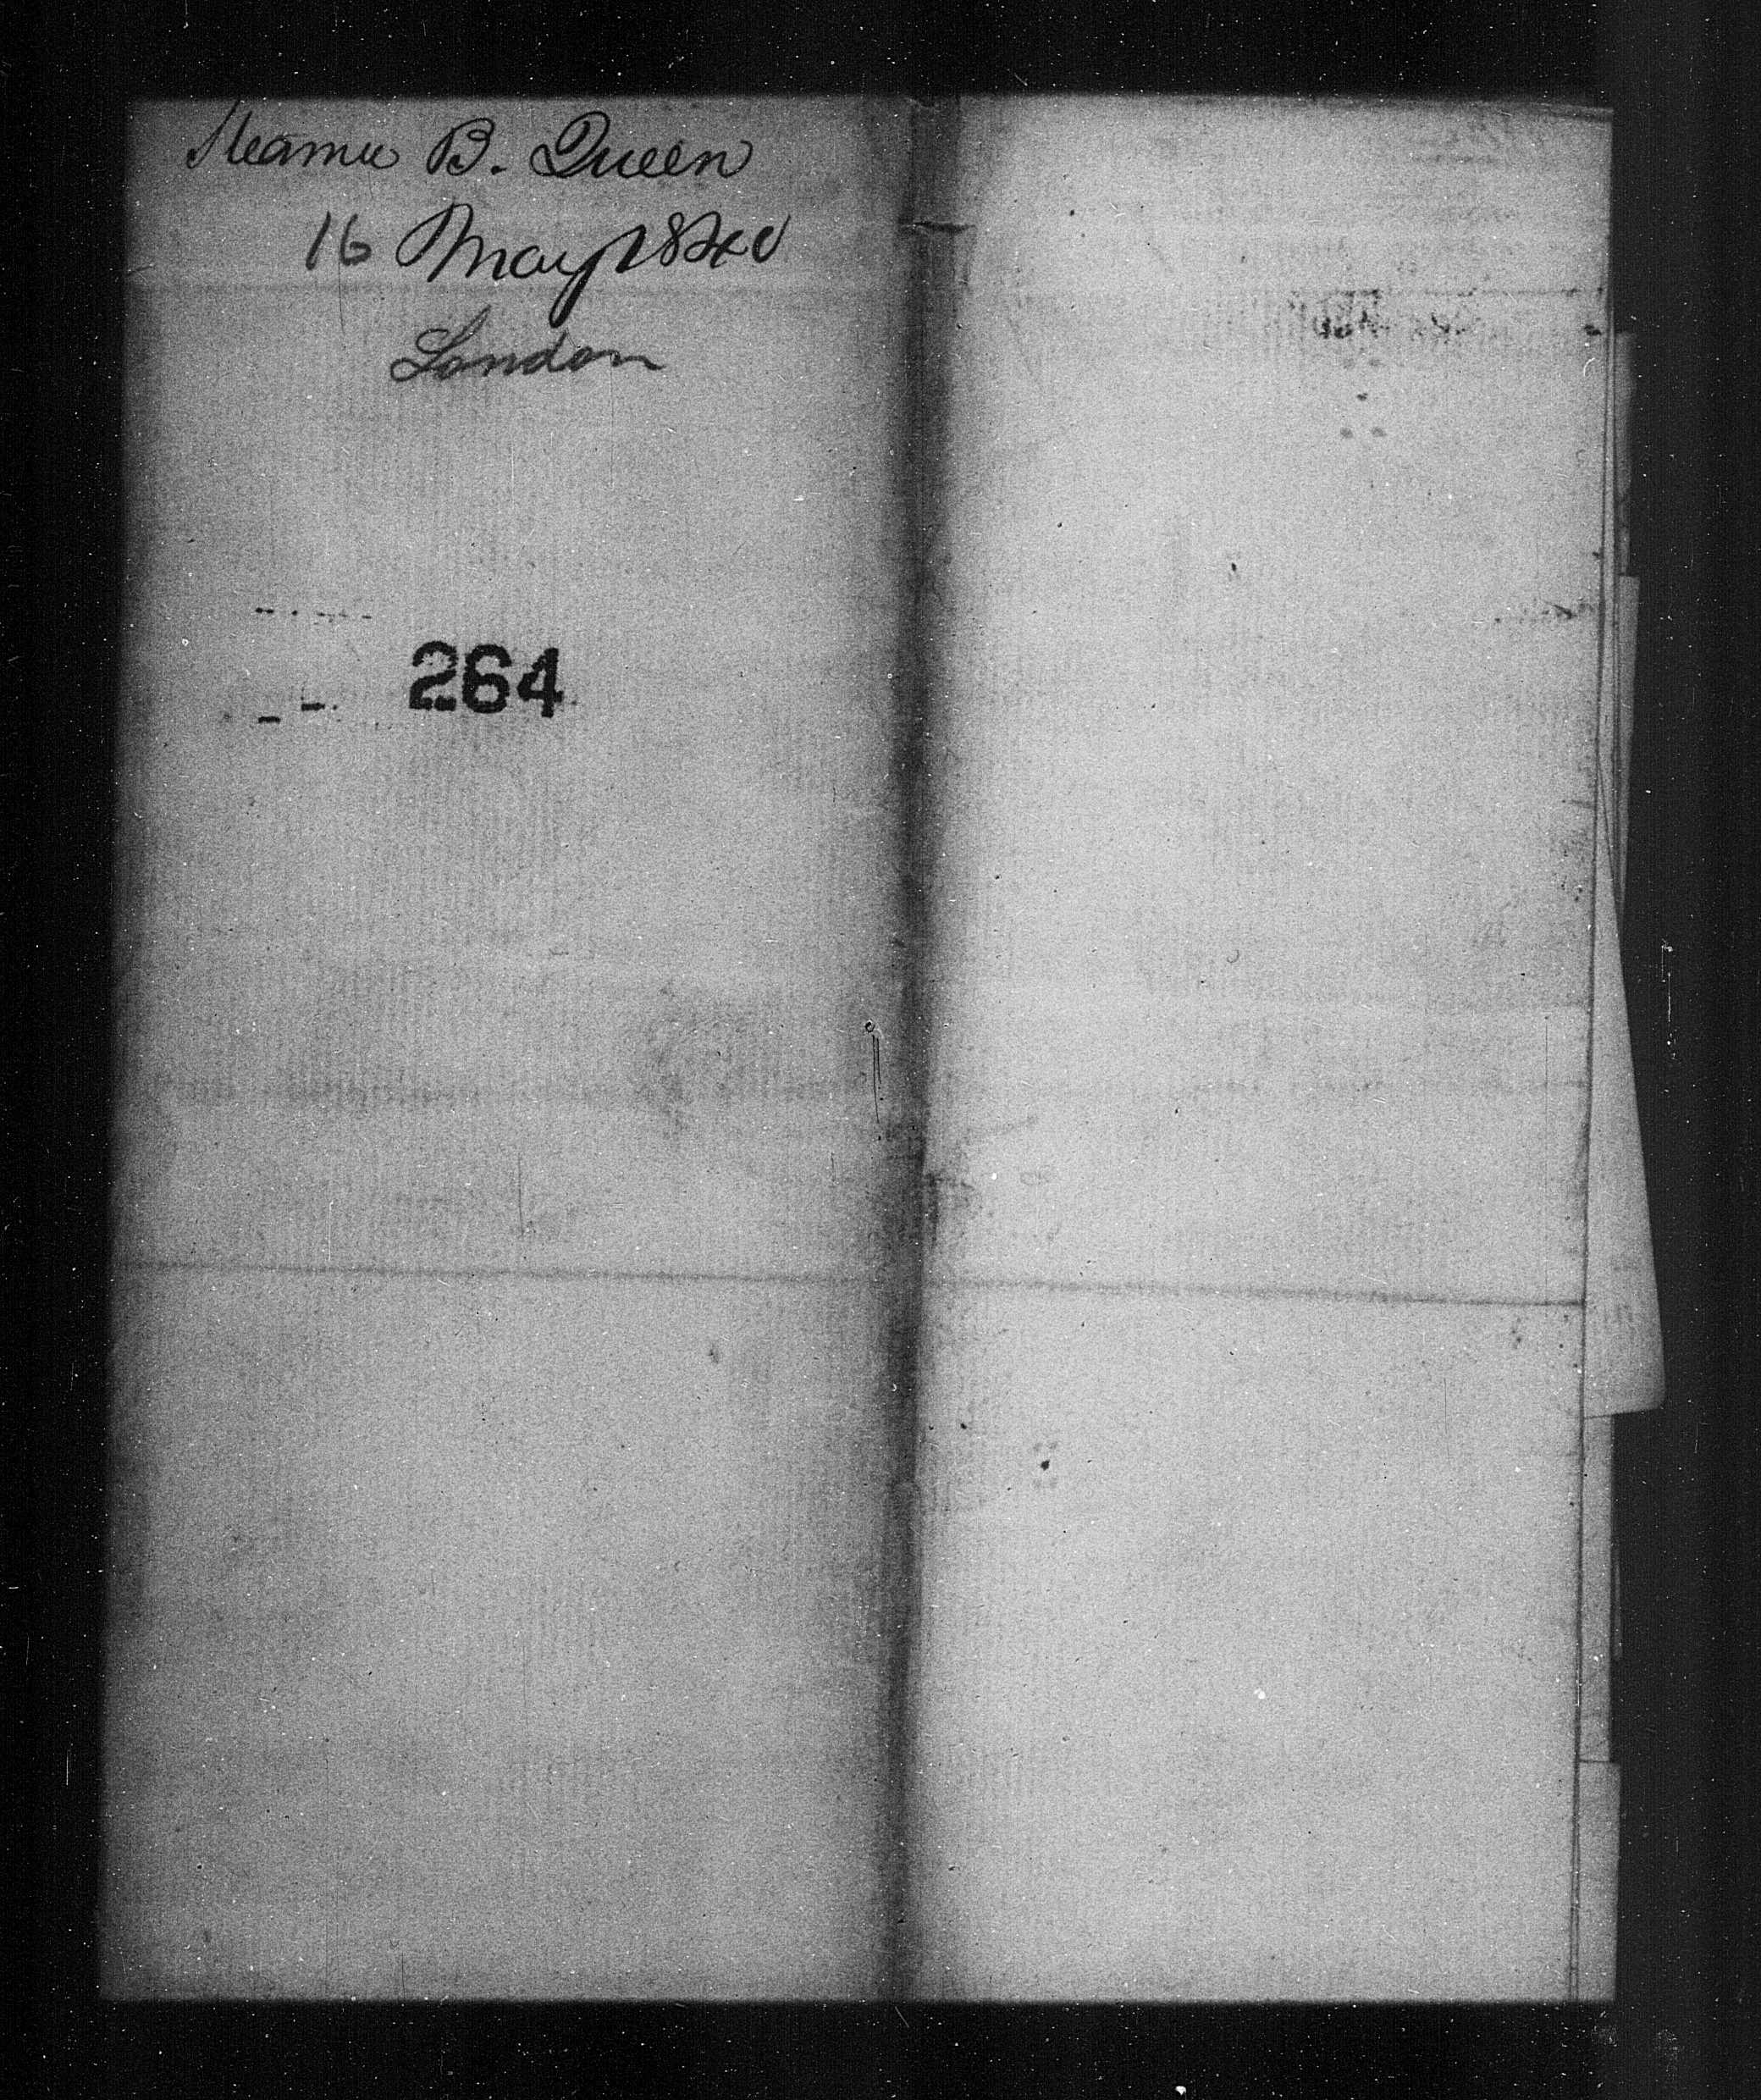 Steamer B. Queen
16 May 1840
London
264